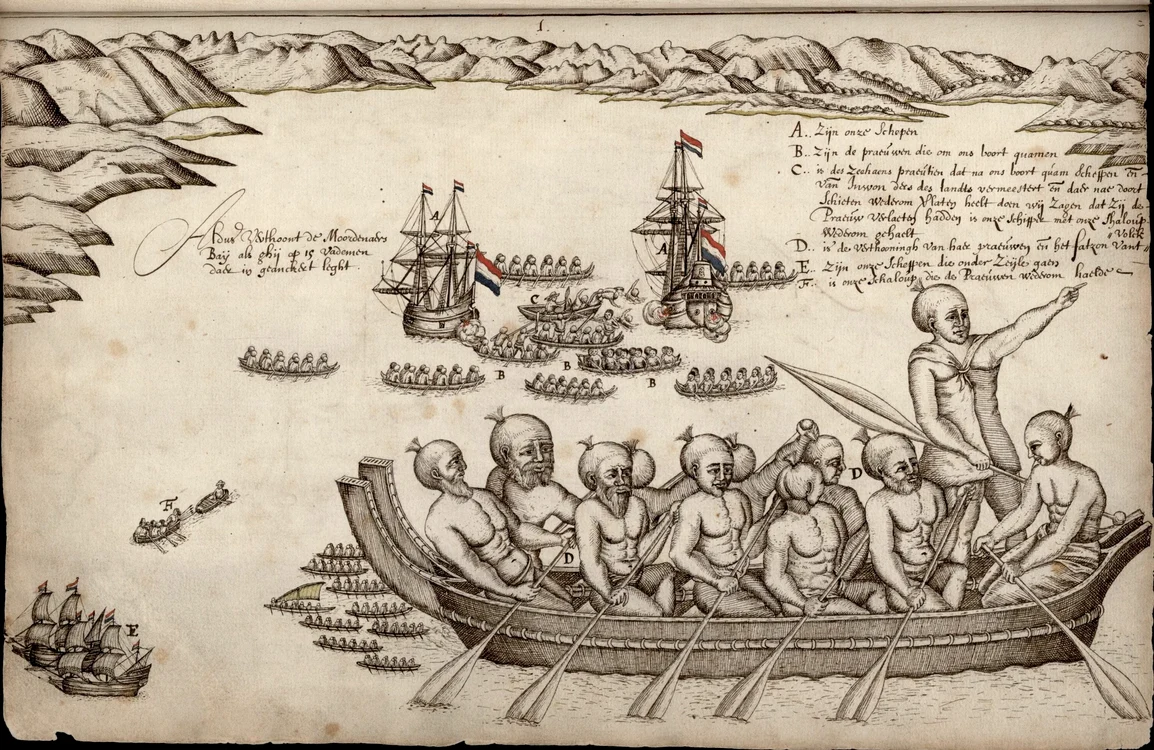 1.
A.. Zijn onze Schepen
B.. Zijn de praeuwen die om ons boort quamen
C.. is des Zeehaens praeutien dat na ons boort quam Scheppen en
van Inwon ders des landts vermeestert en daer nae doort
Schieten wederom Verlaten heelt doen wij Zagen dat Zij de
Praeuw Verlaeten hadden is onze Schipper met onze Shaloup
Wederom gehaelt
Volck
D.. is de Verthooningh van haer praeuwen en het fatzon Vant
E.. Zijn onze Scheppen die onder Zeijle gaen
F.. is onze Schaloup die de Praeuwen wederom haelde
Aldus Verthoont de Moordenaers
Baij als ghij op 15 Vademen
daer in geanckert leght
A
A
C
B
B
B
B
D
D
F
E